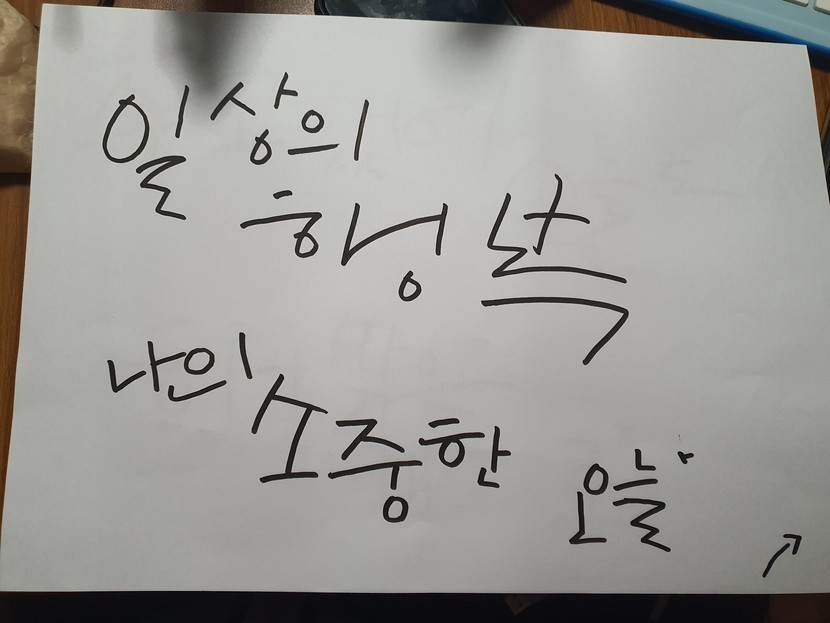 일상의
행복
나의
소중한
오늘